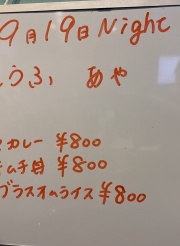 9月19日 Night
うふ めや
カレー ¥800
ムチ丼 ¥800
ブラスオムライス ¥800